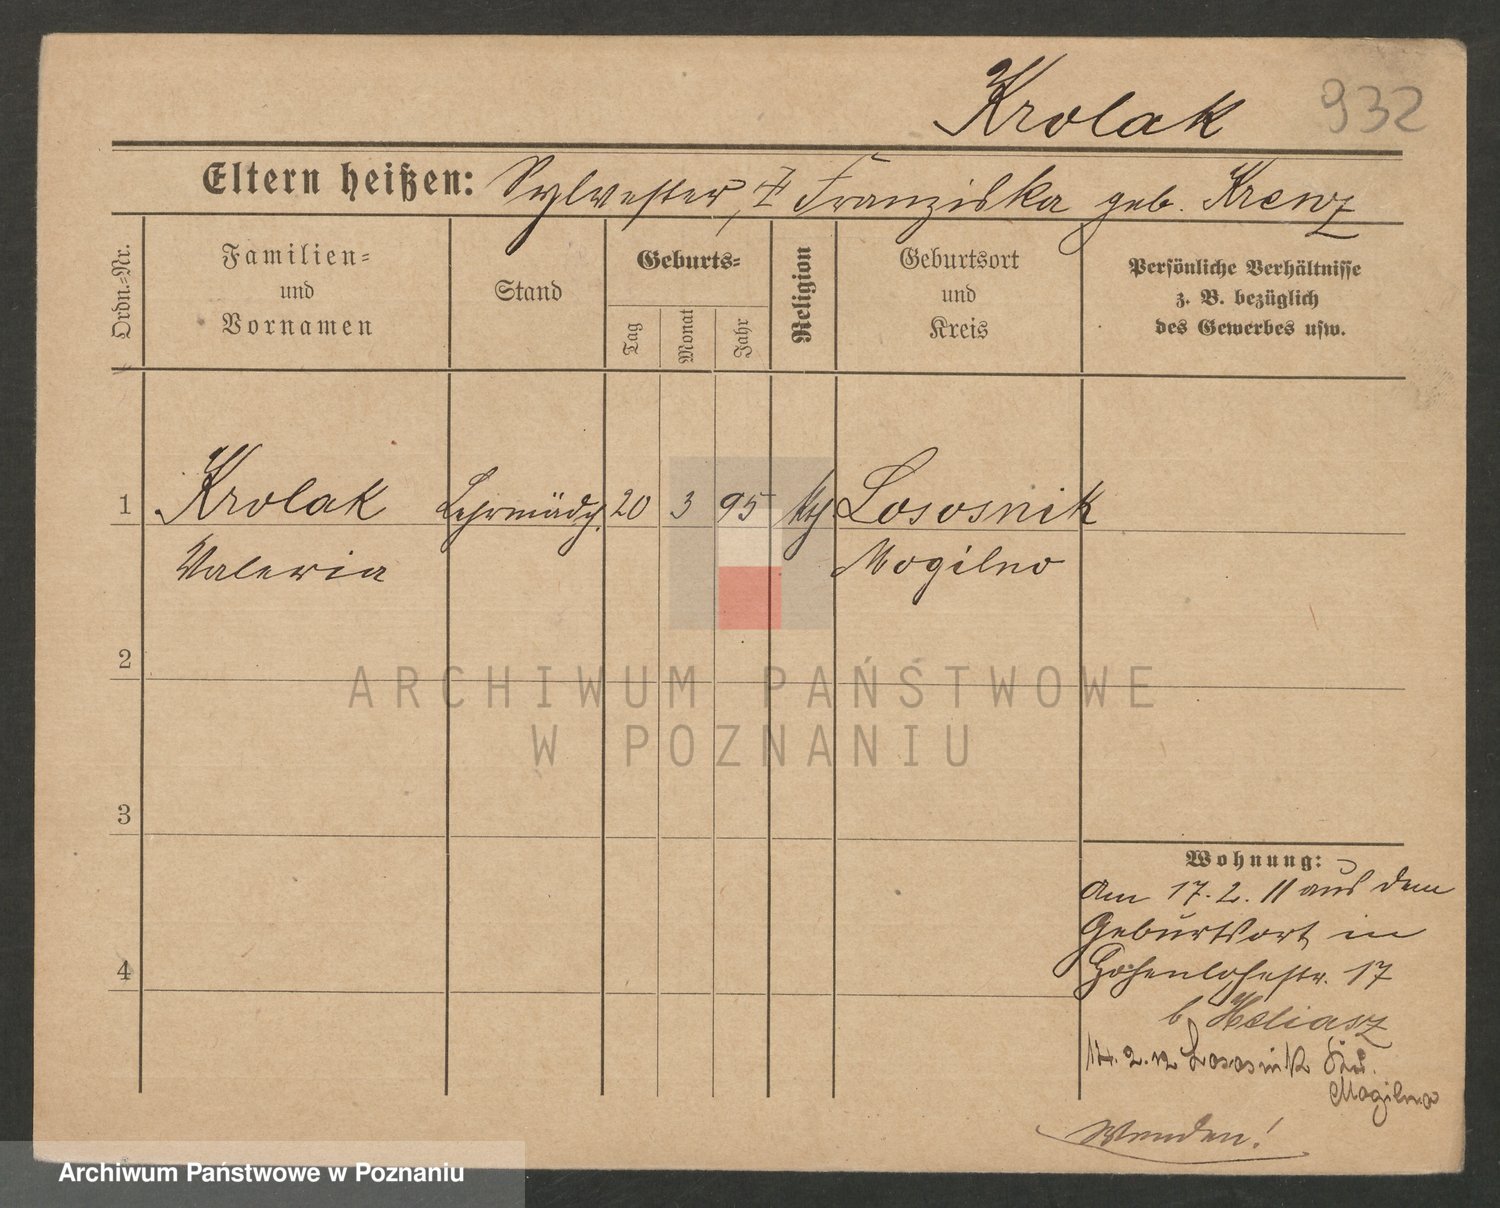 Krolak 932
Eltern heißen: Sylvester, Franziska geb. Krenz
Ordn.-Nr.
Familien-
und
Vornamen
Stand
Geburts-
Tag
Monat
Jahr
Religion
Geburtsort
und
Kreis
Persönliche Verhältnisse
z. B. bezüglich
des Gewerbes usw.
1 Krolak Lehrmädch. 20 3 95 kth Lososnik
Valeria Mogilno
2
3
4
Wohnung:
Am 17. 2. 11 aus dem
Geburtsort in
Hohenlohestr. 17
b. Heliasz
14. 2. 12 Lososnik
Mogilno
Wenden!
ARCHIWUM PAŃSTWOWE
W POZNANIU
Archiwum Państwowe w Poznaniu